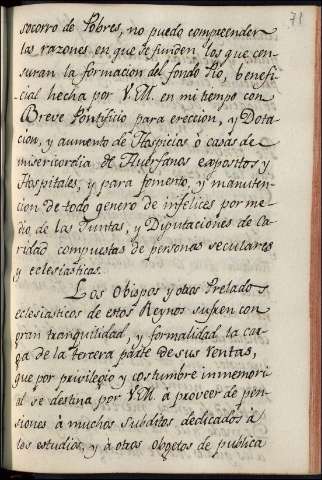 71
socorro de Pobres, no puedo comprender
las razones en que se funden los que cen-
suran la formacion del fondo Pio, benefi-
cial hecha por V.M. en mi tiempo con
Breve Pontificio para ereccion, y Dota-
cion, y aumento de Hospicios ò casas de
misericordia de Huerfanos expositos y
Hospitales, y para fomento, y manuten-
cion de todo genero de infelices por me-
dio de las Juntas, y Diputaciones de Ca-
ridad compuestas de personas seculares
y eclesiasticas.
Los Obispos y otros Prelados
eclesiasticos de estos Reynos sufren con
gran tranquilidad, y formalidad la car-
ga de la tercera parte de sus rentas,
que por privilegio y costumbre inmemori-
al se destina por V.M. à proveer de pen-
siones à muchos subditos dedicados à
los estudios, y à otros obgetos de publica